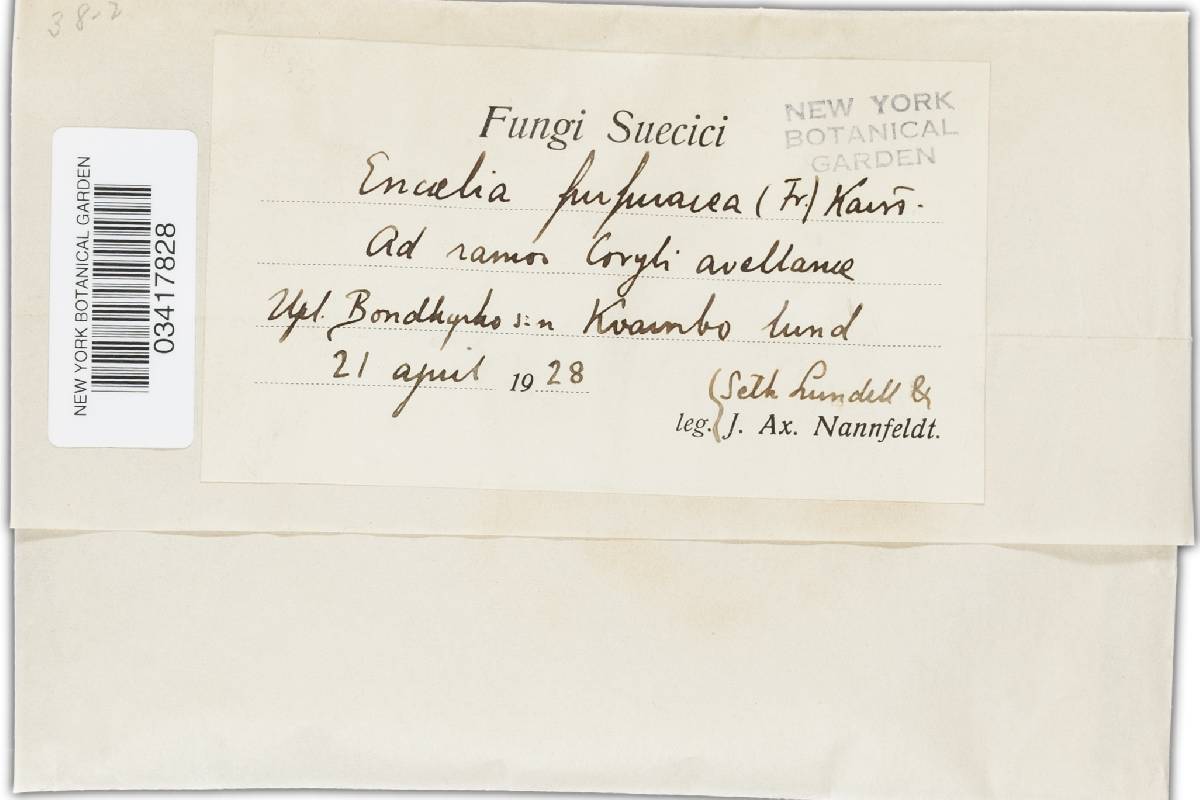 38-2
NEW YORK BOTANICAL GARDEN
03417828
NEW YORK
BOTANICAL
GARDEN
Fungi Suecici
Encœlia furfuracea (Fr.) Karst.
Ad ramos Coryli avellanæ
Upl. Bondkyrko s:n Kvarnbo lund
21 april 1928
(Seth Lundell &
leg. J. Ax. Nannfeldt.